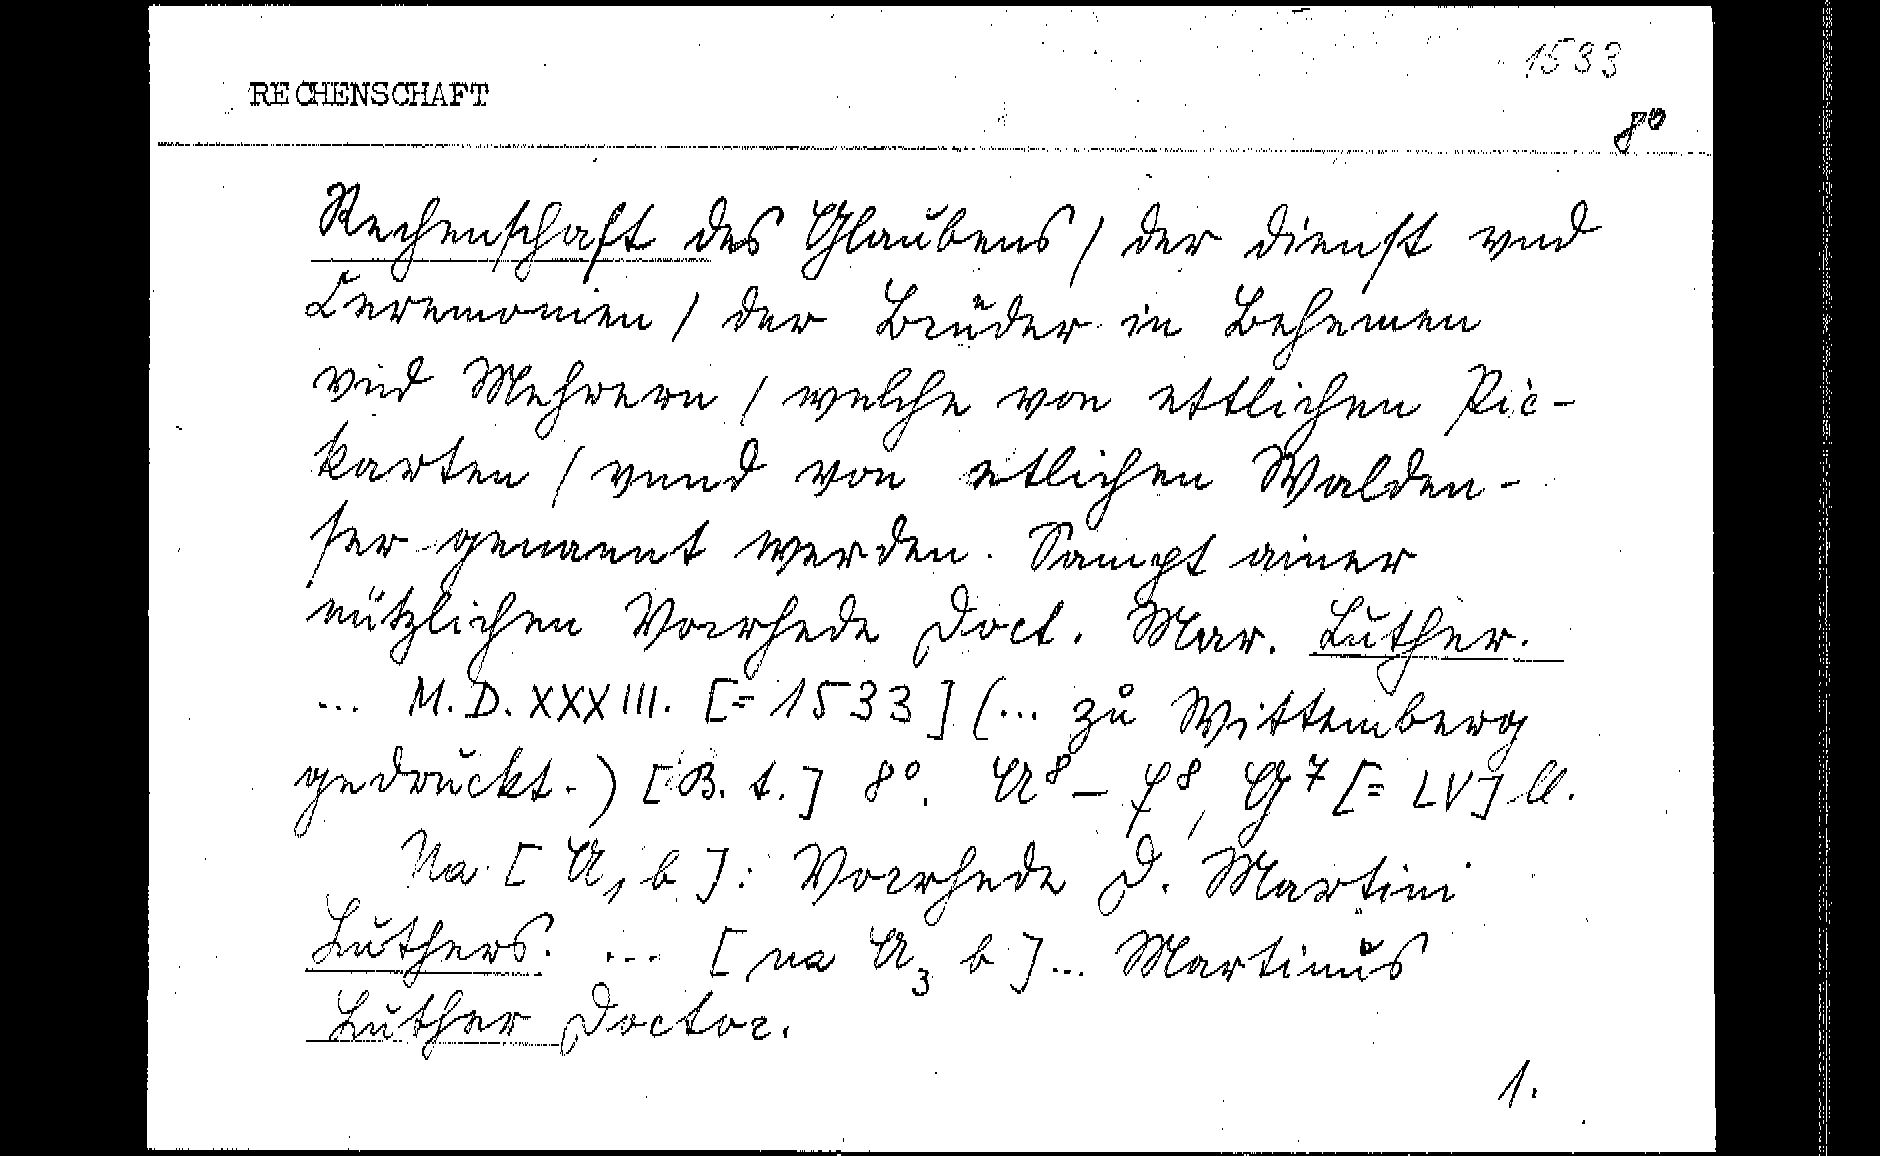 1533
RECHENSCHAFT
8°
Rechenschafft des Glaubens / der dienst vnd
Ceremonien / der Brüder in Behemen
vnd Mehrern / welche von ettlichen Pic-
karten / vnnd von etlichen Walden-
ser genannt werden. Sampt ainer
nützlichen Vorrhede Doct. Mar. Luther.
... M.D.XXXIII. [= 1533] (... zů Wittemberg
gedruckt.) [B. t.] 8°. A⁸ – F⁸, G⁷ [= LV] ll.
Na [A₁b]: Vorrhede D. Martini
Luthers. ... [na A₃ b] ... Martinus
Luther Doctor.
1.